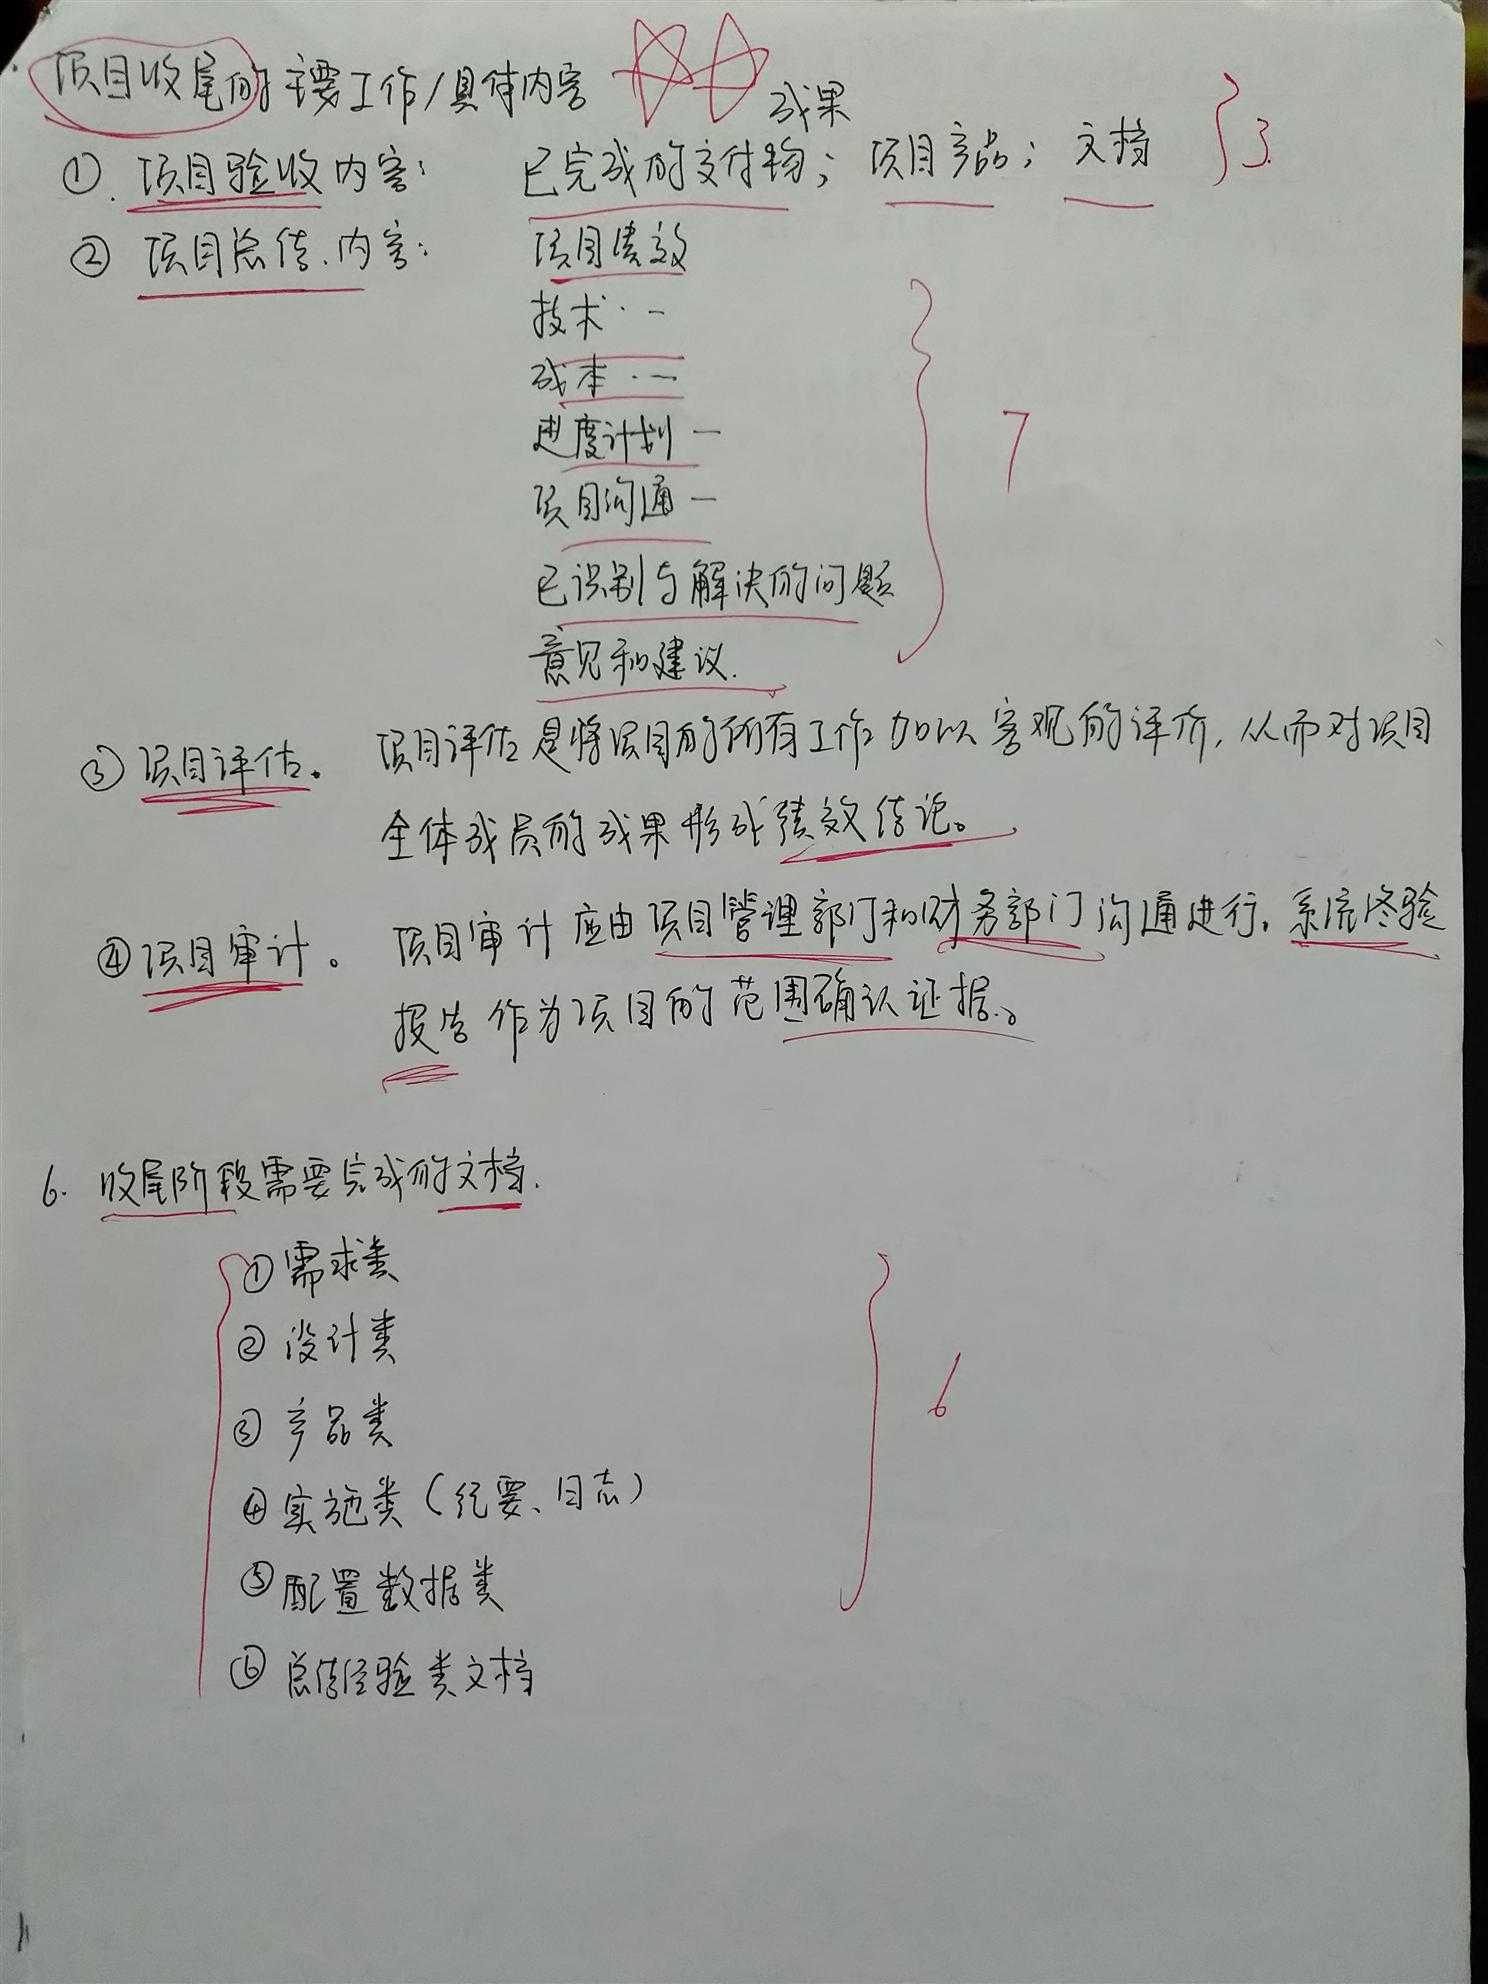 项目收尾的主要工作/具体内容
成果
①. 项目验收内容: 已完成的交付物; 项目产品; 文档 3.
② 项目总结.内容: 项目绩效
技术·一
成本·一
进度计划一
7
项目沟通一
已识别与解决的问题
意见和建议.
③项目评估. 项目评估是将项目的所有工作加以客观的评价, 从而对项目
全体成员的成果形成绩效结论。
④项目审计。 项目审计应由项目管理部门和财务部门沟通进行. 系统终验
报告作为项目的范围确认证据.。
6. 收尾阶段需要完成的文档.
①需求类
②设计类
③产品类
6
④实施类(纪要、日志)
⑤配置数据类
⑥总结经验类文档